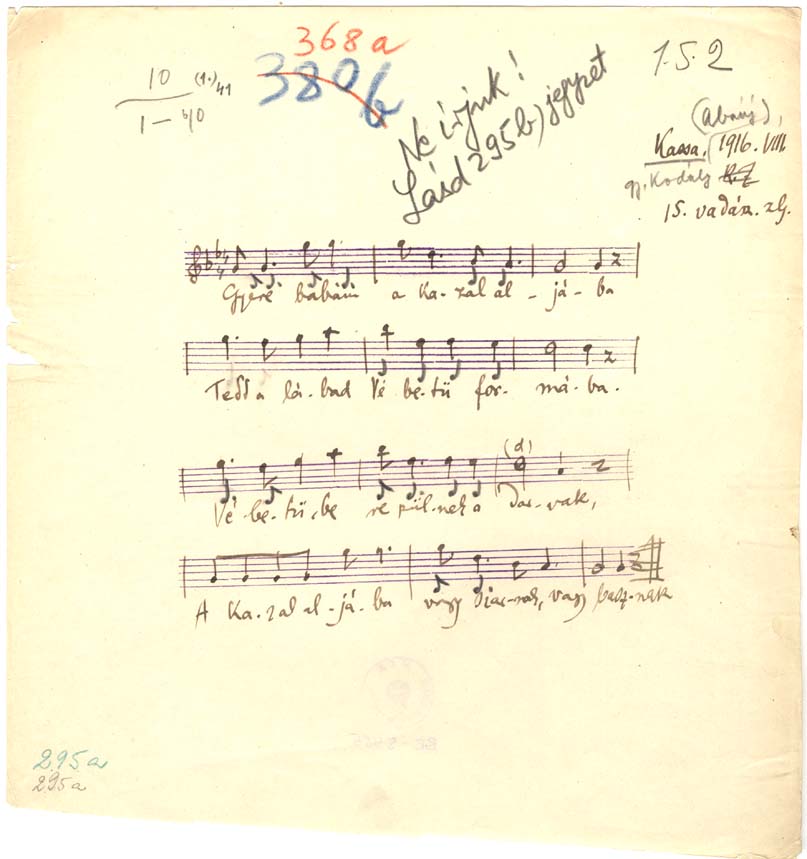 368a
380b
10 (1.) 41
1 – 40
Ne írjuk!
Lásd 295b) jegyzet
1.5.2
(Abaúj),
Kassa, 1916. VIII.
gy. Kodály
15. vadász. zlj.
Gyere babám a kazal al - já - ba
Tedd a lá-bad Vé be-tű for- má-ba.
Vé-be-tű-be re pül-nek a dar-vak,
A ka-zal al-já-ba vagy basz-nak
295a
295a